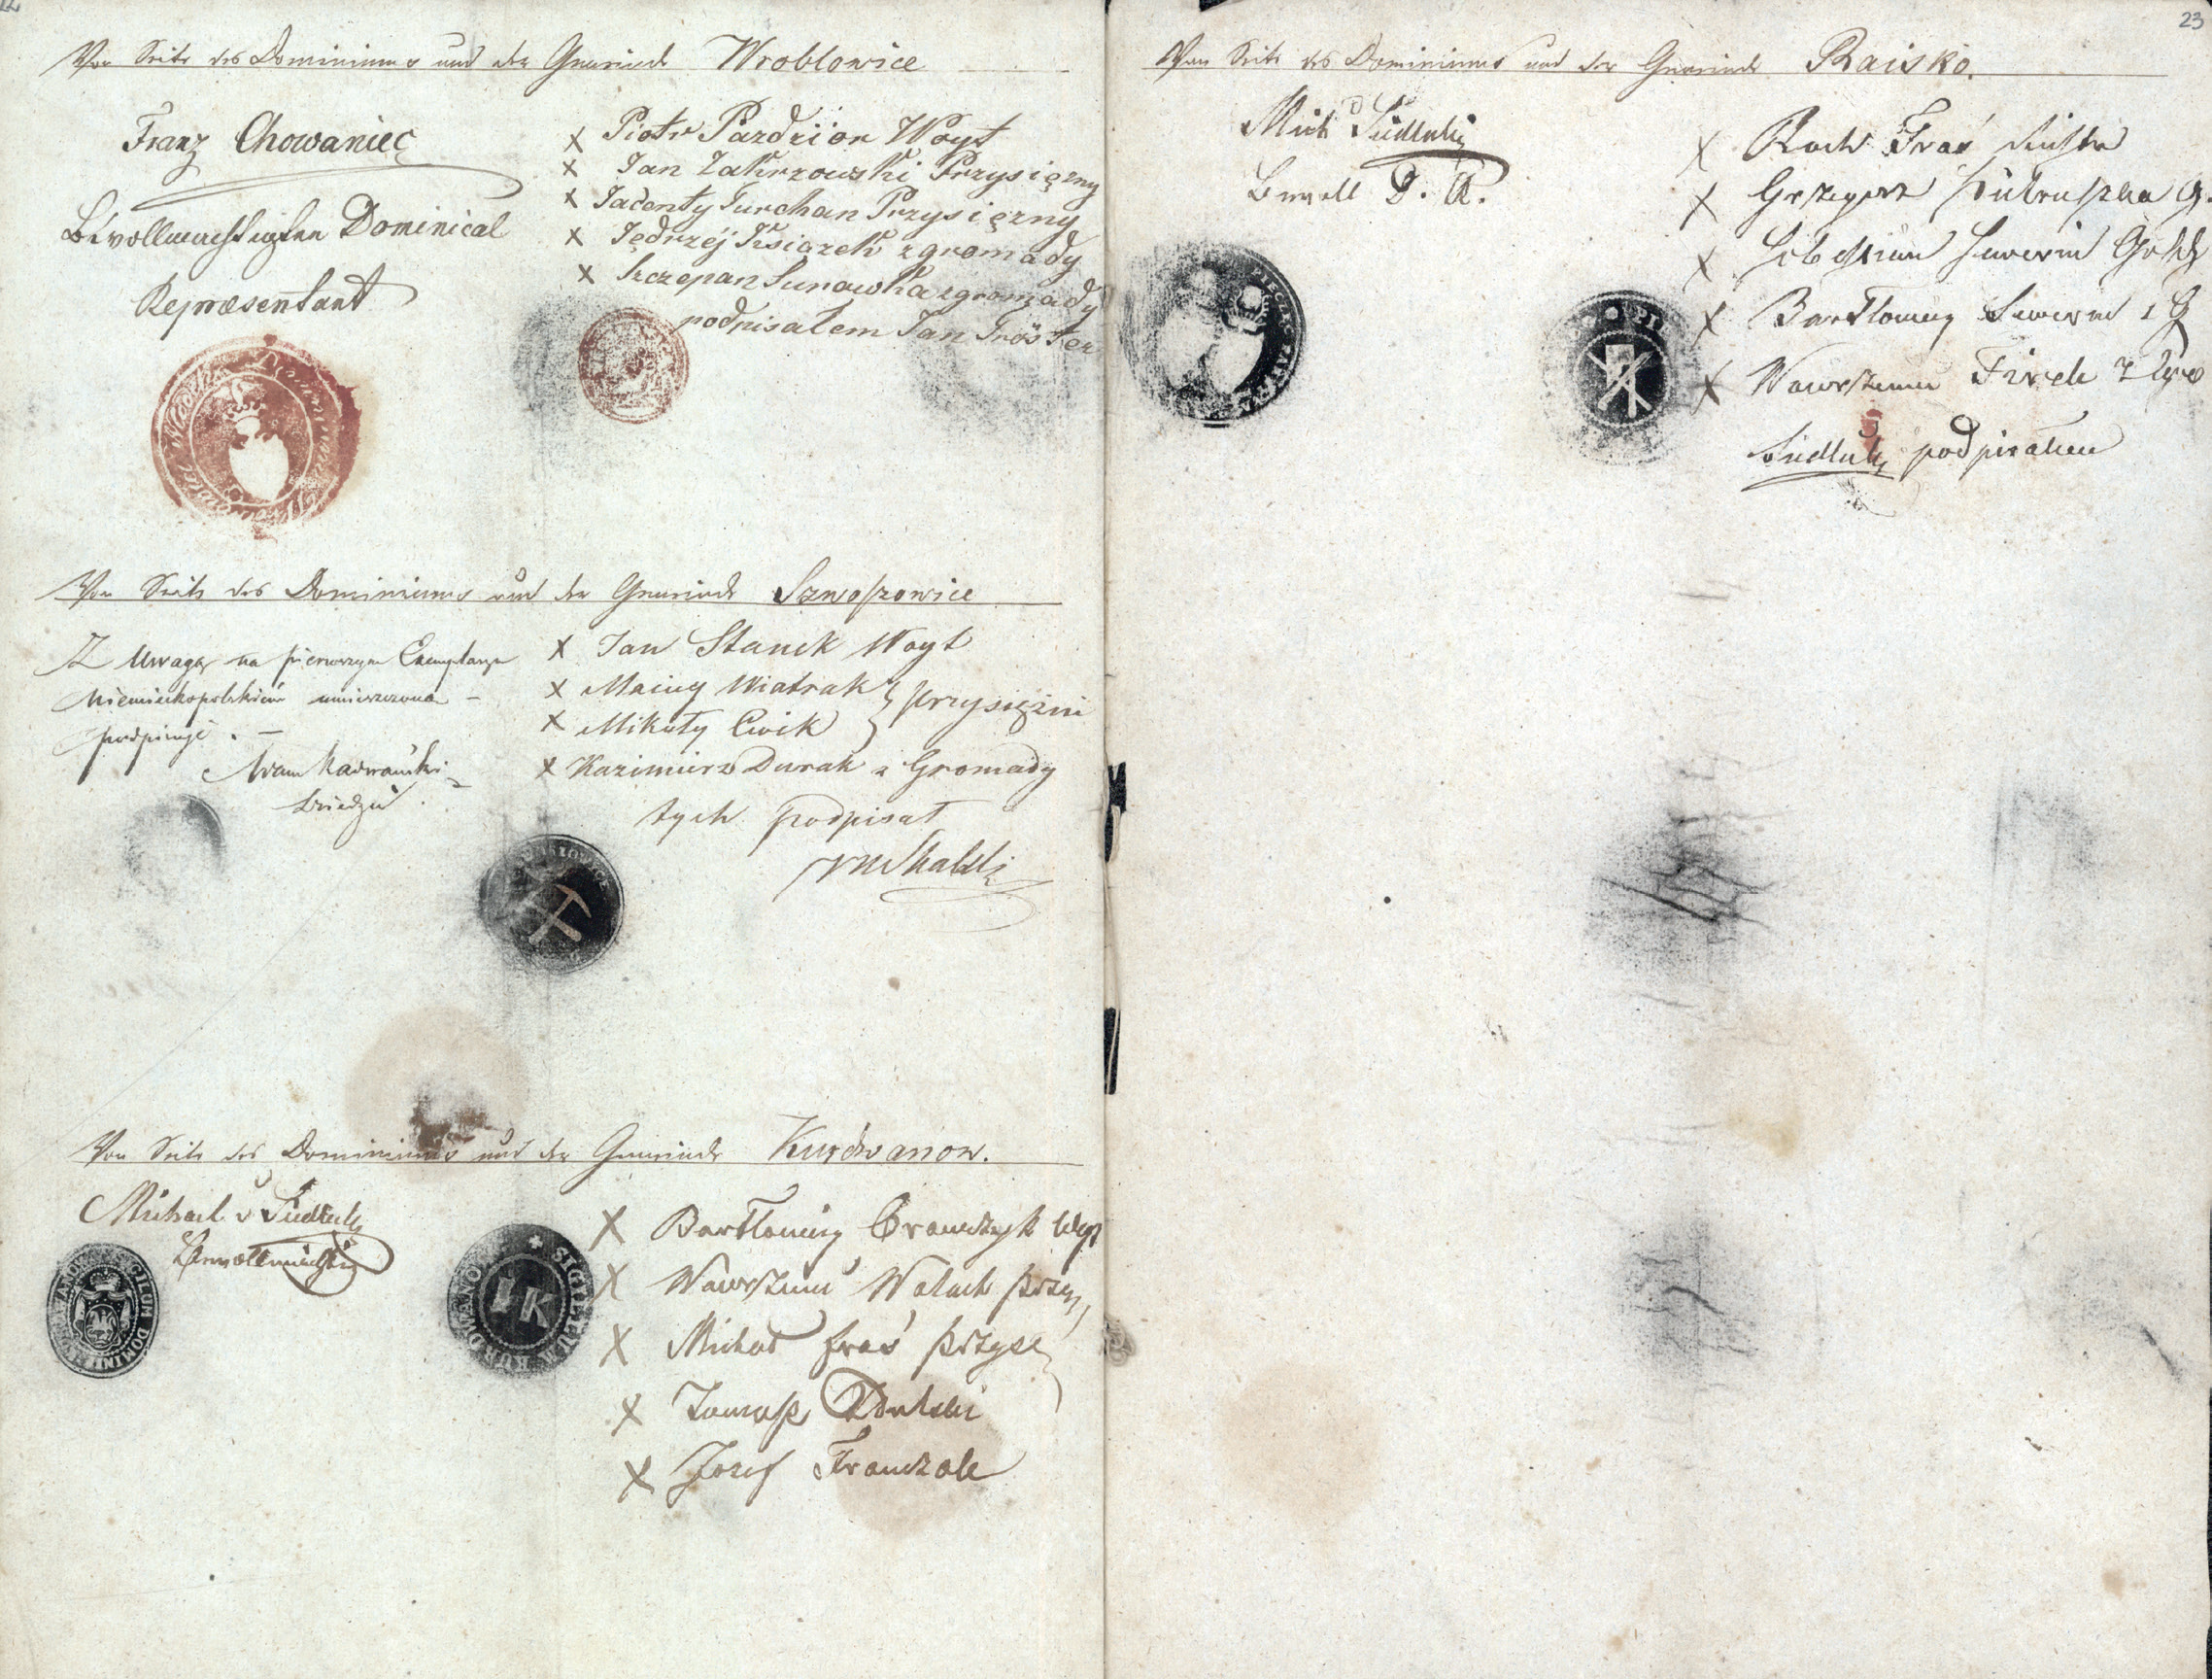 22
Von Seite des Dominiums und der Gemeinde Wroblowice
Franz Chowaniec
Bevollmachtigter Dominical
Repraesentant
x Piotr Pazdzior Woyt
x Jan Zakrzowski Przysięzny
x Jacenty Turchan Przysięzny
x Jędrzéj Ksiązek z gromady
x Szczepan Sunowka z gromady
podpisałem Jan Tröster
Von Seite des Dominiums und der Gemeinde Swoszowice
Z Uwagą na pierwszym Exemplarzu
Niemieckopolskiem umieszczoną
podpisuję.
x Jan Stanek Woyt
x Maciey Wiatrak
x Mikołay Cwik } przysiężni
x Kazimierz Durak z Gromady
tych podpisał
Von Seite des Dominiums und der Gemeinde Kurdwanow.
Michael v Siedlecki
Bevollmächtig
SIGILLUM DOMINII
SIGILLUM KURDWANOW
I K
X Bartłomiey Krawczyk Woyt
X Wawrzeniec Wołoch przy
X Michał Fraś przysę
X Tomasz
X Jozef Franczak
23
Von Seite des Dominiums und der Gemeinde Raisko.
Mich Siedlecki
Bevoll D. R.
X Roch Fraś Richter
X Grzegorz
X Sebestian Seweryn
X Bartłomiey Seweryn z G
X Wawrzeniec
Siedlecki podpisałem